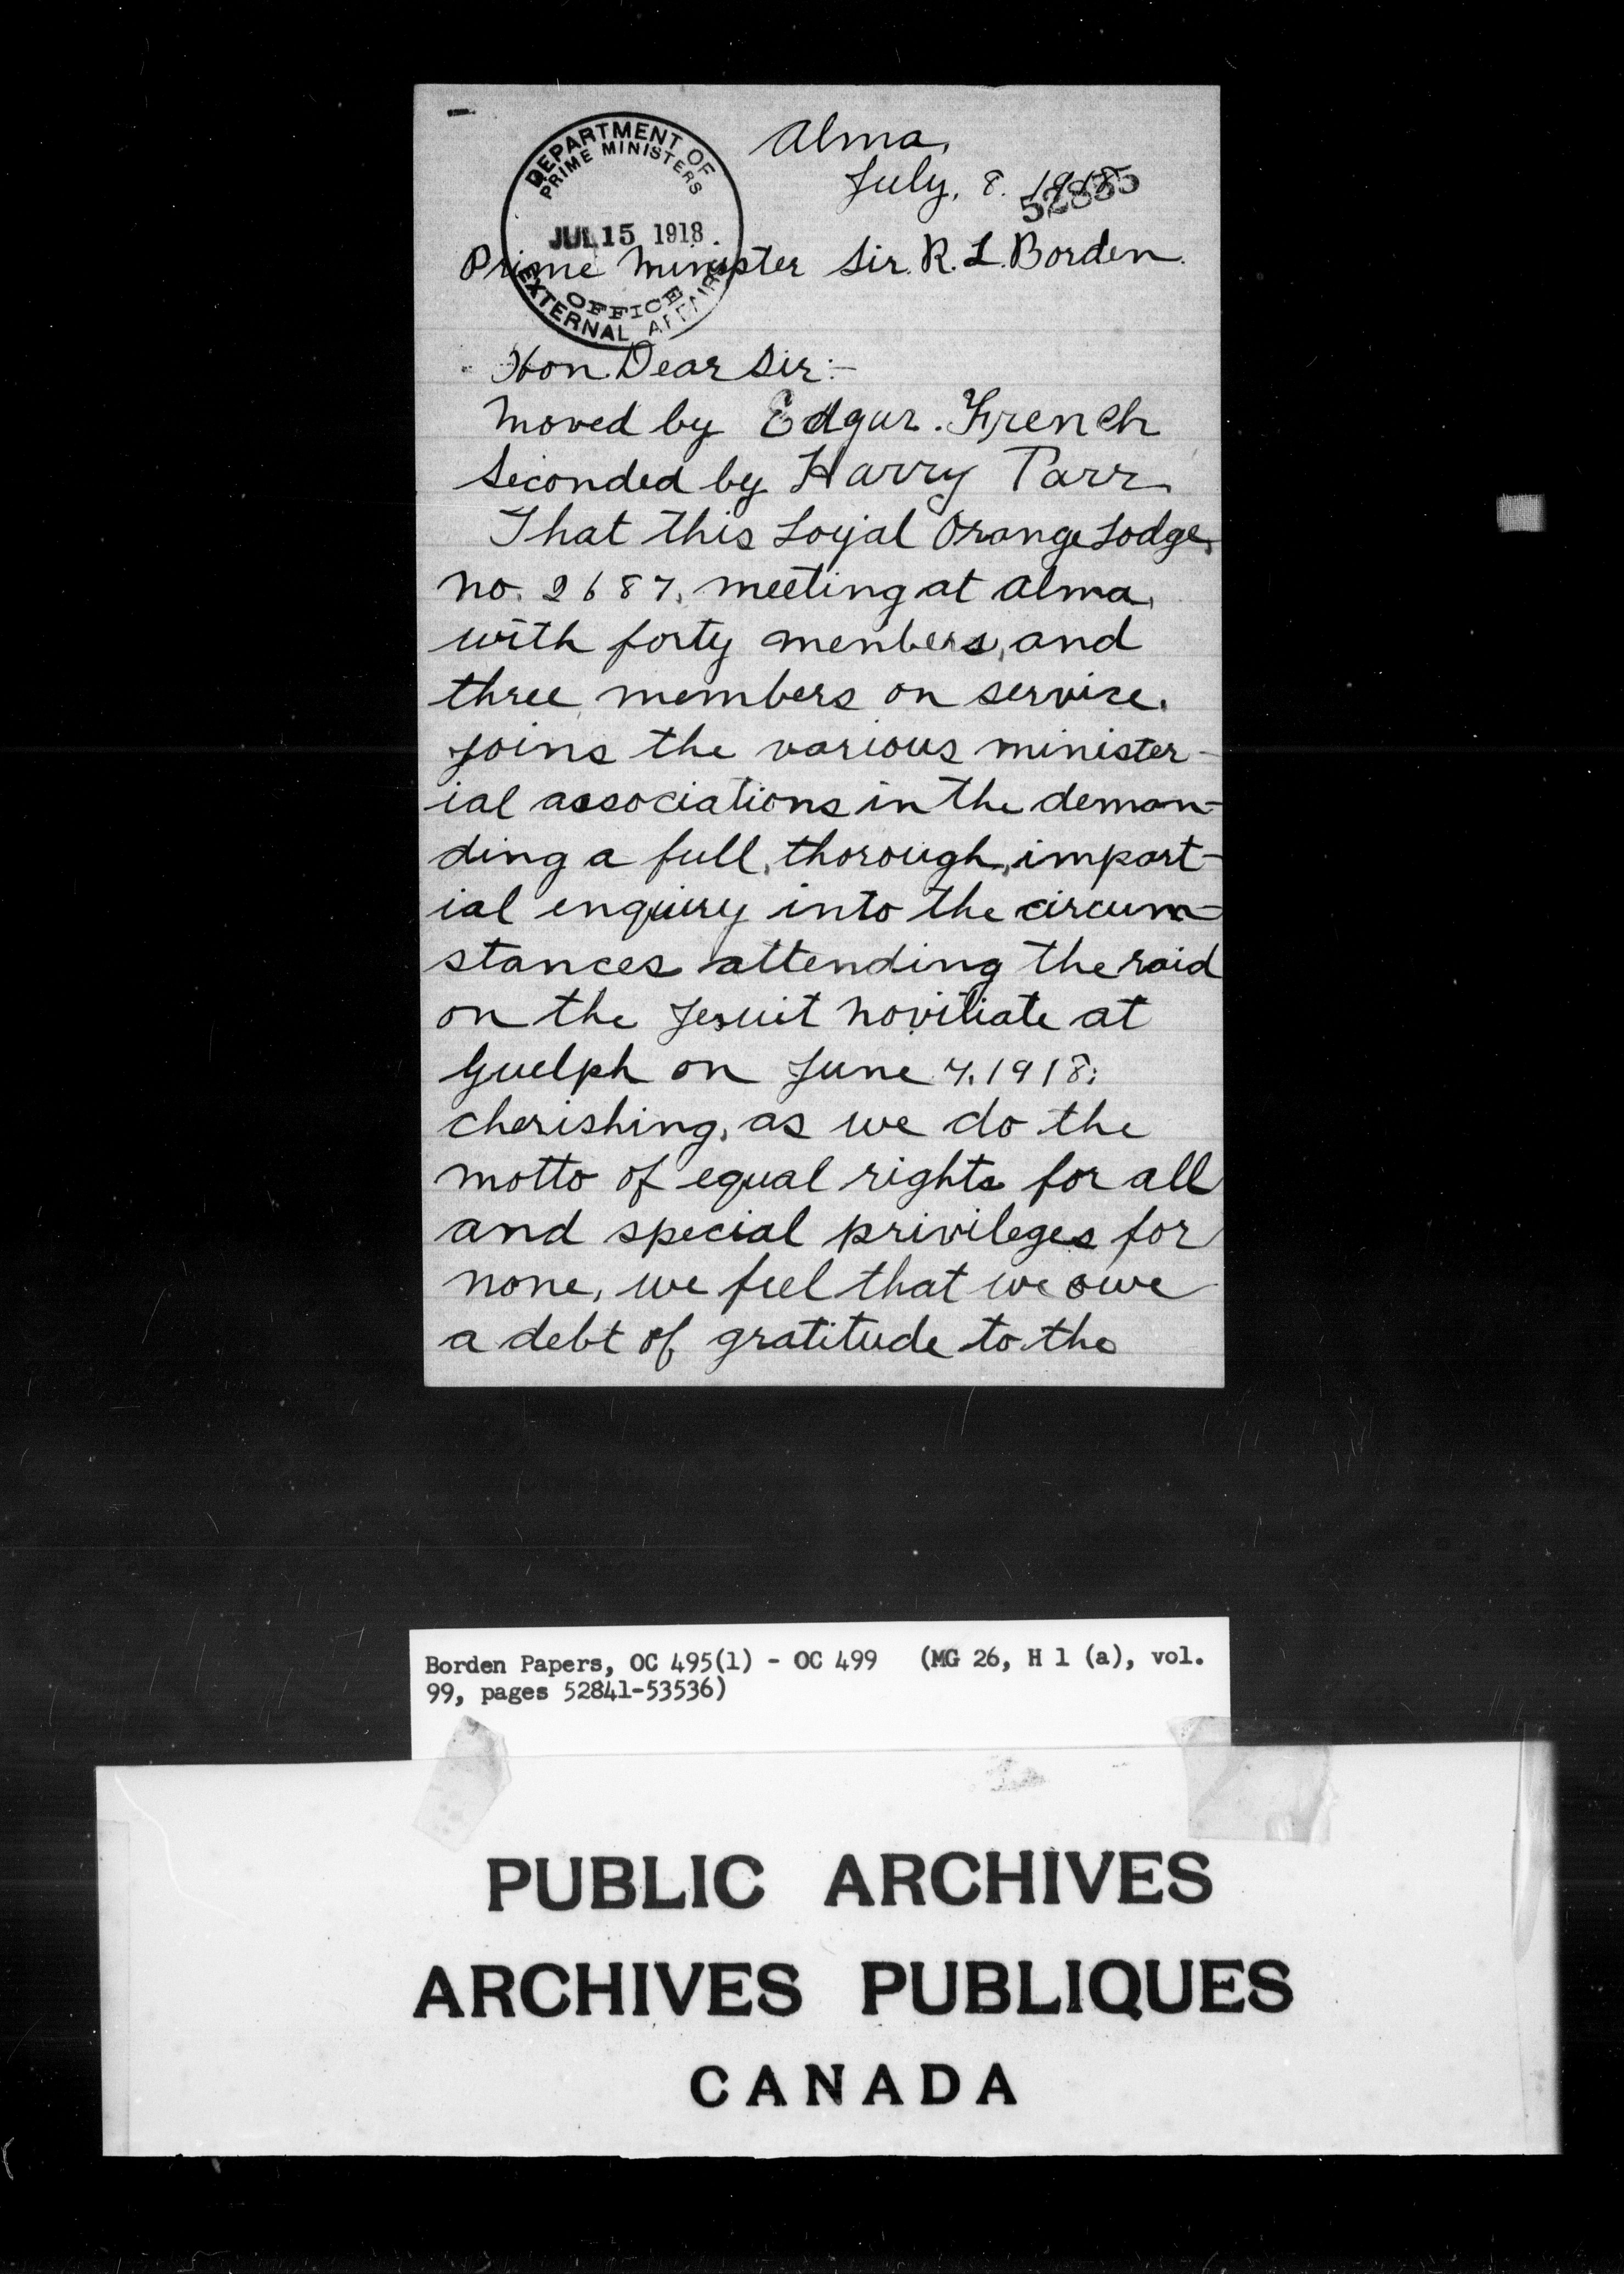 Alma,
July, 8. 1918
52885
DEPARTMENT OF
PRIME MINISTERS
JUL 15 1918
OFFICE
EXTERNAL AFFAIRS
Prime Minister Sir. R. L. Borden.
Hon. Dear Sir:-
Moved by Edgar. French
Seconded by Harry Tarr.
That this Loyal Orange Lodge,
no. 2687, meeting at Alma,
with forty menbers, and
three members on service.
joins the various minister-
ial associations in the deman-
ding a full, thorough, impart-
ial enquiry into the circum-
stances attending the raid
on the Jesuit Novitiate at
Guelph on June 7. 1918;
cherishing, as we do the
motto of equal rights for all
and special privileges for
none, we feel that we owe
a debt of gratitude to the
Borden Papers, OC 495(1) - OC 499 (MG 26, H 1 (a), vol.
99, pages 52841-53536)
PUBLIC ARCHIVES
ARCHIVES PUBLIQUES
CANADA